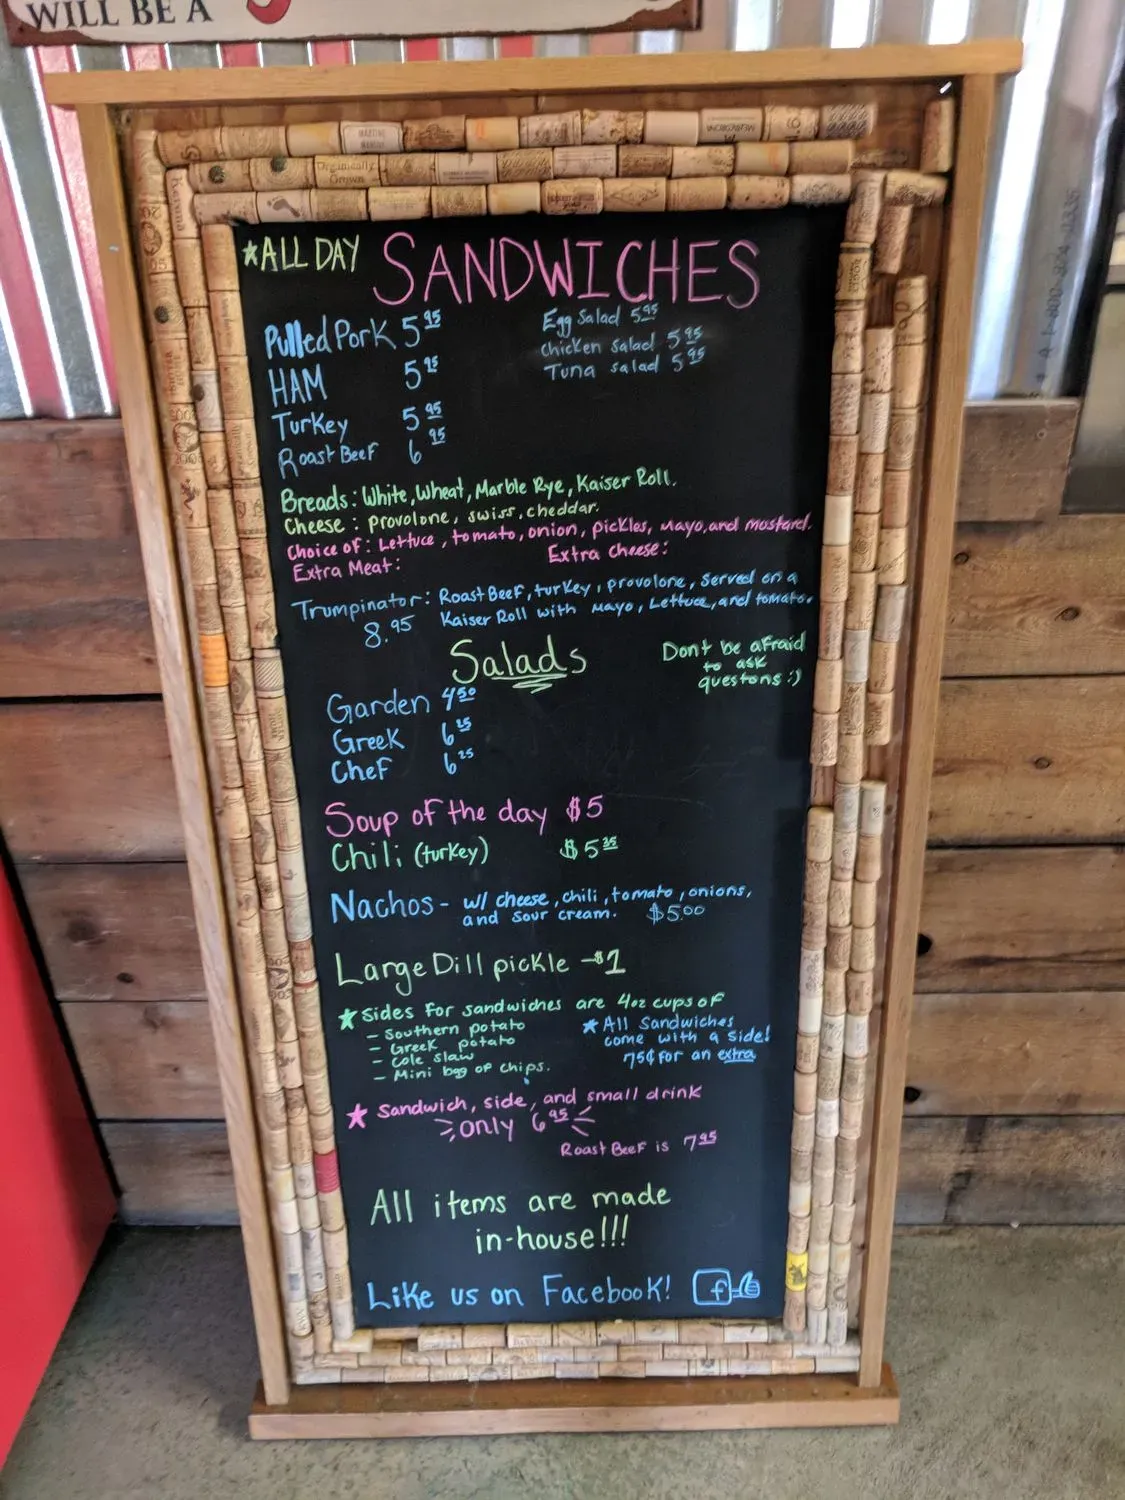 WILL BE A
★ALL DAY SANDWICHES
Pulled Pork 5.95
HAM 5.95
Turkey 5.95
Roast Beef 6.95
Egg Salad 5.95
Chicken Salad 5.95
Tuna salad 5.95
Breads: White, Wheat, Marble Rye, Kaiser Roll.
Cheese: provolone, swiss, cheddar.
Choice of: Lettuce, tomato, onion, pickles, mayo, and mustard.
Extra Meat: Extra Cheese:
Trumpinator: Roast Beef, turkey, provolone, served on a
8.95 Kaiser Roll with mayo, Lettuce, and tomato.
Salads
Dont be afraid
to ask
questons :)
Garden 4.50
Greek 6.25
Chef 6.25
Soup of the day $5
Chili (turkey) $5.25
Nachos - w/ cheese, chili, tomato, onions,
and sour cream. $5.00
Large Dill pickle - $1
★ Sides for sandwiches are 4oz cups of
- Southern potato
- Greek potato
- Cole slaw
- Mini bag of chips.
★ All Sandwiches
come with a side!
75¢ for an extra
★ Sandwich, side, and small drink
only 6.95
Roast Beef is 7.95
All items are made
in-house!!!
Like us on Facebook! f